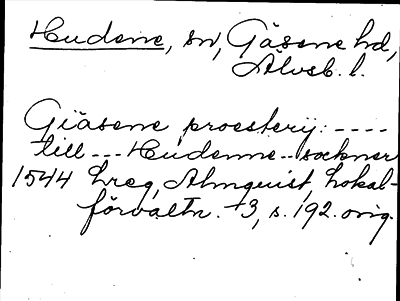 Hudene, sn, Gäsene hd,
Älvsb. l.
Giäsene proesterij: ----
till --- Hudenne -- sockner
1544 hreg, Almquist, Lokal-
förvaltn. 3, s. 192. orig.